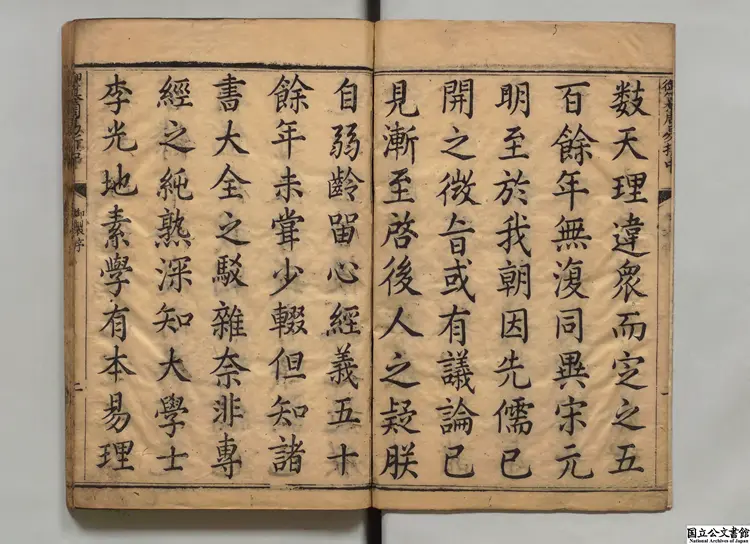 御纂周易折中
數天理違衆而定之五
百餘年無復同異宋元
明至於我朝因先儒已
開之微旨或有議論已
見漸至啓後人之疑朕
自弱齡留心經義五十
餘年未嘗少輟但知諸
書大全之駁雜奈非專
經之純熟深知大學士
李光地素學有本易理
御製序
二
国立公文書館
National Archives of Japan